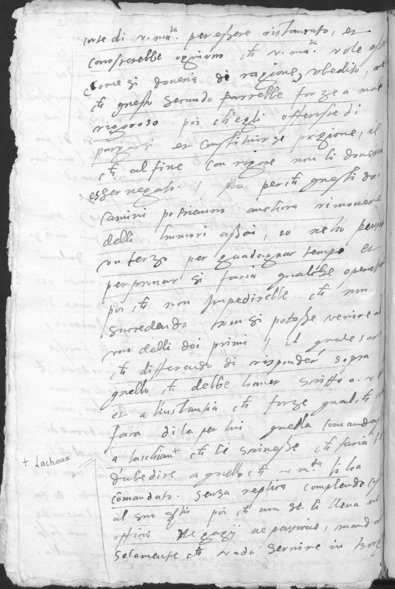 corte di v. ma.tà per essere ristaurato, et
conoscerebbe ogniuno ch v. ma.tà vole esser
come si doveria di ragione, ubedito,
ch questo secondo parrebbe forze a molti
rigoroso poi ch'egli offerisse di
purgarsi et constituirse pregione, il
ch al fine con ragione non li doveria
esser negato. Ma perch questi doi
camini potriano anchora rimovere
delli humori assai, io ne ho pensato
un terzo per guadagnar tempo et
per provar si faria qualche opera
poi ch non impedirebbe ch non
succedendo non si potesse venire al
uno delli doi primi, il quale saria
ch differendo di rispondere sopra
quello ch debbe haver scritto a v.
et a l'instantia ch forze qualche
fara di la per lui quella comandasse
a laschau+ ch li scrivesse ch faria
d'ubedire a quello ch v. m.tà li ha
comandato. senza replica complendo
al suo poi ch una se li lieva
officii ne gagi ne pensione, ma
solamente ch vada servire in
+ Lachaux